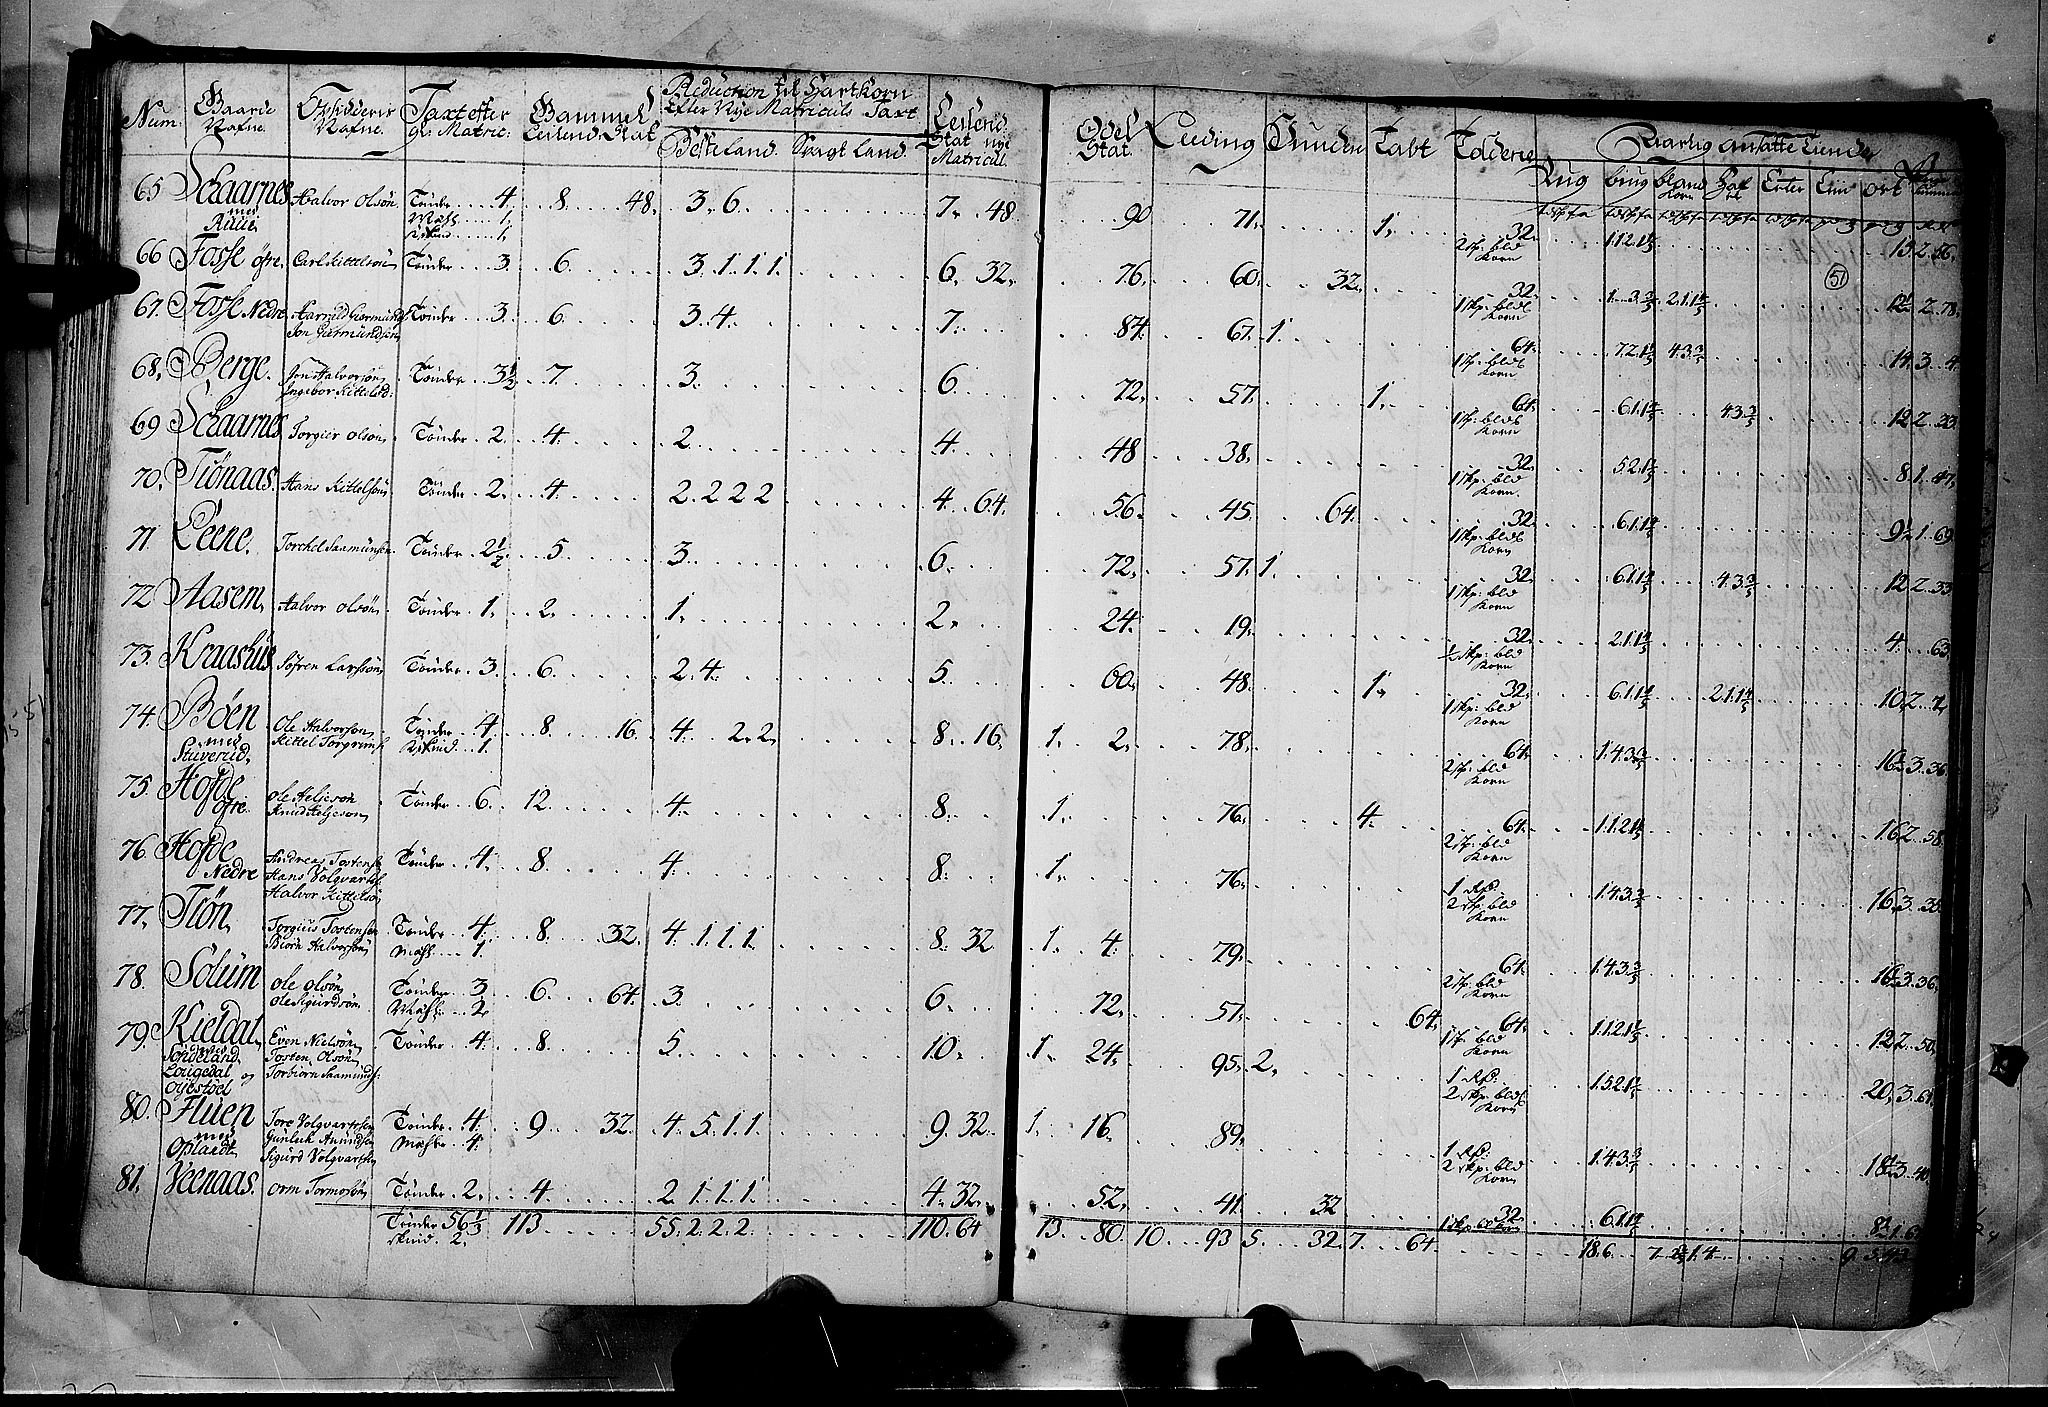 Num: Gaarde Nafne. Opsidderis Nafne. Taxt efter gl: Matric: Gammel Leilend: Skat Reduction til Hartkorn Efter Nye Matriculs Taxt Besteland. Svagt land. Leilend: Skat nye Matricul.
Odel Skat. Leeding Tabt Tolderie Aarlig ansatte Tiender
Rug biug bland Korn Haf re Erter Liin ort
65 Schaarnes med Ruue Halvor Olsön Tönder 4. Mæhl. 1. Skind 1. 8. 48. 3. 6 7. 48 90 71. 1. 32. 2 skp: bld Korn 1.12.1 13.2.
66 Fosse öfre Carl Kittelsön Tönder 3. 6. 3. 1. 1. 1 6. 32. 76. 60. 32. 32. 1 skp: bld Korn 1..3. 2.1. 12½ 2.78.
51
67. Fosse Nedre Harrild Giermunds Jon Giermundsen Tönder 3. 6. 3. 4. 7. 84. 67. 1. 64. 1 skp: bld Korn 7.2.1 4.3. 14.3..4.
68. Berge. Jon Halversön Ingebor Kittelsd: Tönder 3½ 7. 3. 6. 72. 57. 1. 64. 1 skp: bld Korn 6.1.1 4.3. 12.2..33.
69 Schaarnes Torgier Olsön Tönder 2. 4. 2. 4. 48 38. 32. 1 skp: bld Korn 5.2.1 8.1.47.
70. Tiönaas. Hans Kittelsön Tönder 2. 4. 2. 2 2 2 4. 64. 56. 45. 64. 32. 1 skp: bld Korn 6.1.1 9½.1..69
71. Leene. Torchel Saamünsen Tönder 2½ 5 3. 6. 72. 57. 1. 32. 1 skp: bld Korn 6.1.1 4.3. 12.2..33
72 Aasem. Halvor Olsön Tönder 1. 2. 1. 2. 24. 19. 32. ½ skp: bld Korn 2.1.1 4. 63.
73. Kraashüs Söfren Larssön Tönder 3. 6. 2. 4. 5. 60. 48. 1. 32. 1 skp: bld Korn 6.1.1 2.1.1 10.2..7.
74. Böen med Stuverud. Ole Halvorsön Kittel Torgrims: Tönder 4. Skind. 1. 8. 16. 4. 2. 2. 8. 16. 1. 2. 78. 64. 2 skp: bld Korn 1.4.3. 16½.3..36.
75. Hofde öfre. Ole Heljesön Knud Heljesön Tönder 6. 12. 4. 8. 1. 76. 4. 64. 2 skp: bld Korn 1.1.2.1 16.2..58.
76. Hofde Nedre Andreas Tostens: Hans Volqvarts: Halvor Kittelsön Tönder 4. 8. 4. 8. 1. 76. 1 Rd: 2 skp: bld Korn 1.4.3. 16.3..35.
77. Tiön Torgius Tostensön Biörn Halvorsön Tönder 4. Mæhl. 1. 8. 32. 4. 1. 1. 1 8. 32 1. 4. 79. 64. 2 skp: bld Korn 1.4.3. 16½.3..36.
78. Solum Ole Olsön Ole Sigurdsön Tönder 3. Mæhl: 2. 6. 64. 3. 6. 72. 57. 64. 64. 1 skp: bld Korn 1.1.2.1 12.2..50.
79. Kieldal. Sönderland Lougedal og Oijestöel Even Nielsön Tosten Olsön Torbiörn Saamunds: Tönder 4. 8. 5. 10. 1. 24. 95. 2. 1 Rd: 2 skp: bld Korn 1.5.2.1 20.3..61
80. Fluen med Opslaadt Tore Volqvartsen Gunluk Amundsön Sigurd Volqvartsön Tönder 4. Mæhler 4. 9. 32. 4. 5. 1. 1 9. 32. 1. 16. 89. 1 Rd: 2 skp: bld Korn 1.4.3. 18½.3..40
81. Veenaas. Orm Tormosön Tönder 2. 4. 2 1. 1. 1. 4. 32. 52. 41. 32 32. 1 skp: bld Korn 6.1.1 8½.1.6
Tönder 56⅓ skind 2. 113 55. 2. 2. 2 110. 64 13. 80. 10. 93 5. 32. 7. 64. 18.6 7. 1.4. 9.